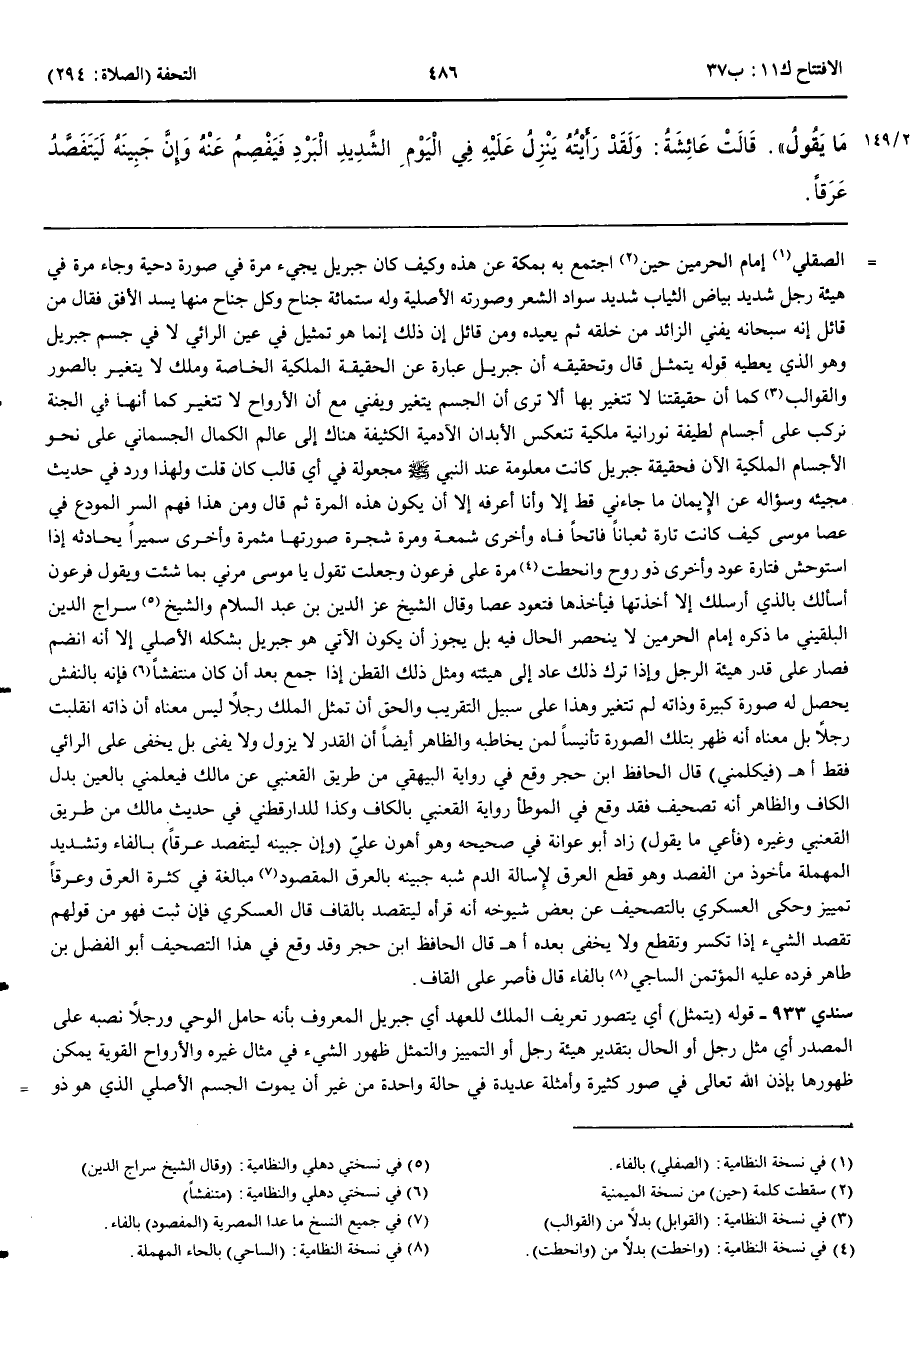 الافتتاح ك١١: ب٣٧
٤٨٦
التحفة (الصلاة: ٢٩٤)
١٤٩/٢
مَا يَقُولُ». قَالَتْ عَائِشَةُ: وَلَقَدْ رَأَيْتُهُ يَنْزِلُ عَلَيْهِ فِي الْيَوْمِ الشَّدِيدِ الْبَرْدِ فَيَفْصِمُ عَنْهُ وَإِنَّ جَبِينَهُ لَيَتَفَصَّدُ
عَرَقاً.
= الصقلي(١) إمام الحرمين حين(٢) اجتمع به بمكة عن هذه وكيف كان جبريل يجيء مرة في صورة دحية وجاء مرة في
هيئة رجل شديد بياض الثياب شديد سواد الشعر وصورته الأصلية وله ستمائة جناح وكل جناح منها يسد الأفق فقال من
قائل إنه سبحانه يفني الزائد من خلقه ثم يعيده ومن قائل إن ذلك إنما هو تمثيل في عين الرائي لا في جسم جبريل
وهو الذي يعطيه قوله يتمثل قال وتحقيقه أن جبريل عبارة عن الحقيقة الملكية الخاصة وملك لا يتغير بالصور
والقوالب(٣) كما أن حقيقتنا لا تتغير بها ألا ترى أن الجسم يتغير ويفني مع أن الأرواح لا تتغير كما أنها في الجنة
نركب على أجسام لطيفة نورانية ملكية تنعكس الأبدان الآدمية الكثيفة هناك إلى عالم الكمال الجسماني على نحو
الأجسام الملكية الآن فحقيقة جبريل كانت معلومة عند النبي ﷺ مجعولة في أي قالب كان قلت ولهذا ورد في حديث
مجيئه وسؤاله عن الإيمان ما جاءني قط إلا وأنا أعرفه إلا أن يكون هذه المرة ثم قال ومن هذا فهم السر المودع في
عصا موسى كيف كانت تارة ثعباناً فاتحاً فاه وأخرى شمعة ومرة شجرة صورتها مثمرة وأخرى سميراً يحادثه إذا
استوحش فتارة عود وأخرى ذو روح وانحطت(٤) مرة على فرعون وجعلت تقول يا موسى مرني بما شئت ويقول فرعون
أسألك بالذي أرسلك إلا أخذتها فيأخذها فتعود عصا وقال الشيخ عز الدين بن عبد السلام والشيخ(٥) سراج الدين
البلقيني ما ذكره إمام الحرمين لا ينحصر الحال فيه بل يجوز أن يكون الآتي هو جبريل بشكله الأصلي إلا أنه انضم
فصار على قدر هيئة الرجل وإذا ترك ذلك عاد إلى هيئته ومثل ذلك القطن إذا جمع بعد أن كان منتفشاً(٦) فإنه بالنفش
يحصل له صورة كبيرة وذاته لم تتغير وهذا على سبيل التقريب والحق أن تمثل الملك رجلاً ليس معناه أن ذاته انقلبت
رجلاً بل معناه أنه ظهر بتلك الصورة تأنيساً لمن يخاطبه والظاهر أيضاً أن القدر لا يزول ولا يفنى بل يخفى على الرائي
فقط أ هـ (فيكلمني) قال الحافظ ابن حجر وقع في رواية البيهقي من طريق القعنبي عن مالك فيعلمني بالعين بدل
الكاف والظاهر أنه تصحيف فقد وقع في الموطأ رواية القعنبي بالكاف وكذا للدارقطني في حديث مالك من طريق
القعنبي وغيره (فأعي ما يقول) زاد أبو عوانة في صحيحه وهو أهون عليّ (وإن جبينه ليتفصد عرقاً) بالفاء وتشديد
المهملة مأخوذ من الفصد وهو قطع العرق لإسالة الدم شبه جبينه بالعرق المقصود(٧) مبالغة في كثرة العرق وعرقاً
تمييز وحكى العسكري بالتصحيف عن بعض شيوخه أنه قرأه ليتقصد بالقاف قال العسكري فإن ثبت فهو من قولهم
تقصد الشيء إذا تكسر وتقطع ولا يخفى بعده أ هـ قال الحافظ ابن حجر وقد وقع في هذا التصحيف أبو الفضل بن
طاهر فرده عليه المؤتمن الساجي(٨) بالفاء قال فأصر على القاف.
سندي ٩٣٣ ـ قوله (يتمثل) أي يتصور تعريف الملك للعهد أي جبريل المعروف بأنه حامل الوحي ورجلاً نصبه على
المصدر أي مثل رجل أو الحال بتقدير هيئة رجل أو التمييز والتمثل ظهور الشيء في مثال غيره والأرواح القوية يمكن
ظهورها بإذن الله تعالى في صور كثيرة وأمثلة عديدة في حالة واحدة من غير أن يموت الجسم الأصلي الذي هو ذو =
(١) في نسخة النظامية: (الصفلي) بالفاء.
(٢) سقطت كلمة (حين) من نسخة الميمنية
(٣) في نسخة النظامية: (القوابل) بدلاً من (القوالب)
(٤) في نسخة النظامية: (واخطت) بدلاً من (وانحطت).
(٥) في نسختي دهلي والنظامية: (وقال الشيخ سراج الدين)
(٦) في نسختي دهلي والنظامية: (متنفشاً)
(٧) في جميع النسخ ما عدا المصرية (المفصود) بالفاء.
(٨) في نسخة النظامية: (الساحي) بالحاء المهملة.